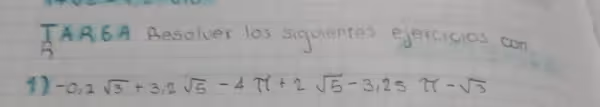 TAREA Resolver los siguientes ejercicios con
R
1) -0,2 √3 + 3,2 √5 - 4 π + 2 √5 - 3,25 π - √3